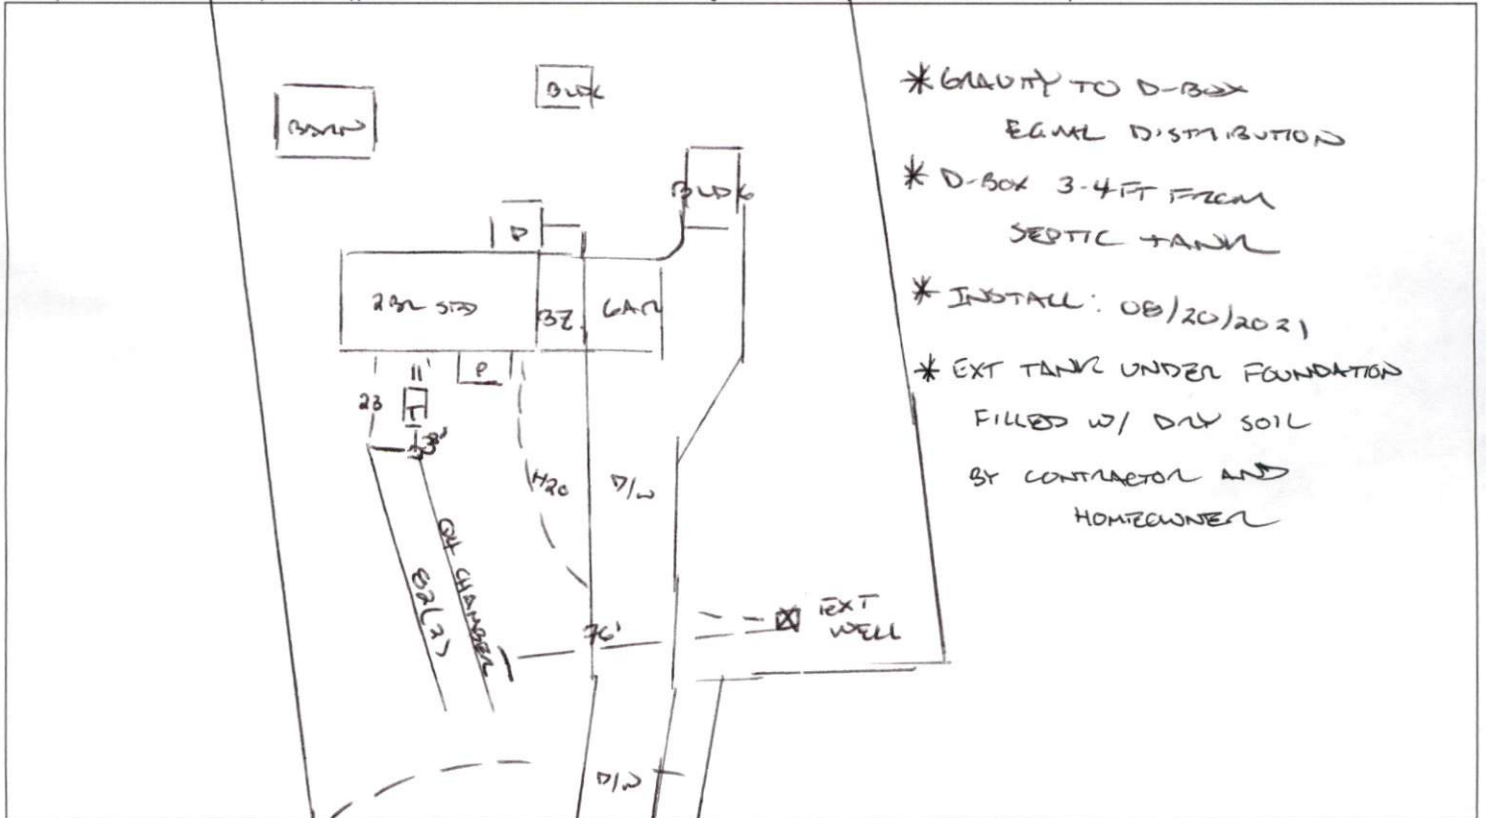 BLDG
BARN
BLDG
P
2BR SFD
BZ
GAR
P
11'
23
T
8'
H2O
D/W
Q4 CHAMBER
82(2)
76'
EXT
WELL
D/W
* GRAVITY TO D-BOX
EQUAL DISTRIBUTION
* D-BOX 3-4FT FROM
SEPTIC TANK
* INSTALL: 08/20/2021
* EXT TANK UNDER FOUNDATION
FILLED W/ DRY SOIL
BY CONTRACTOR AND
HOMEOWNER